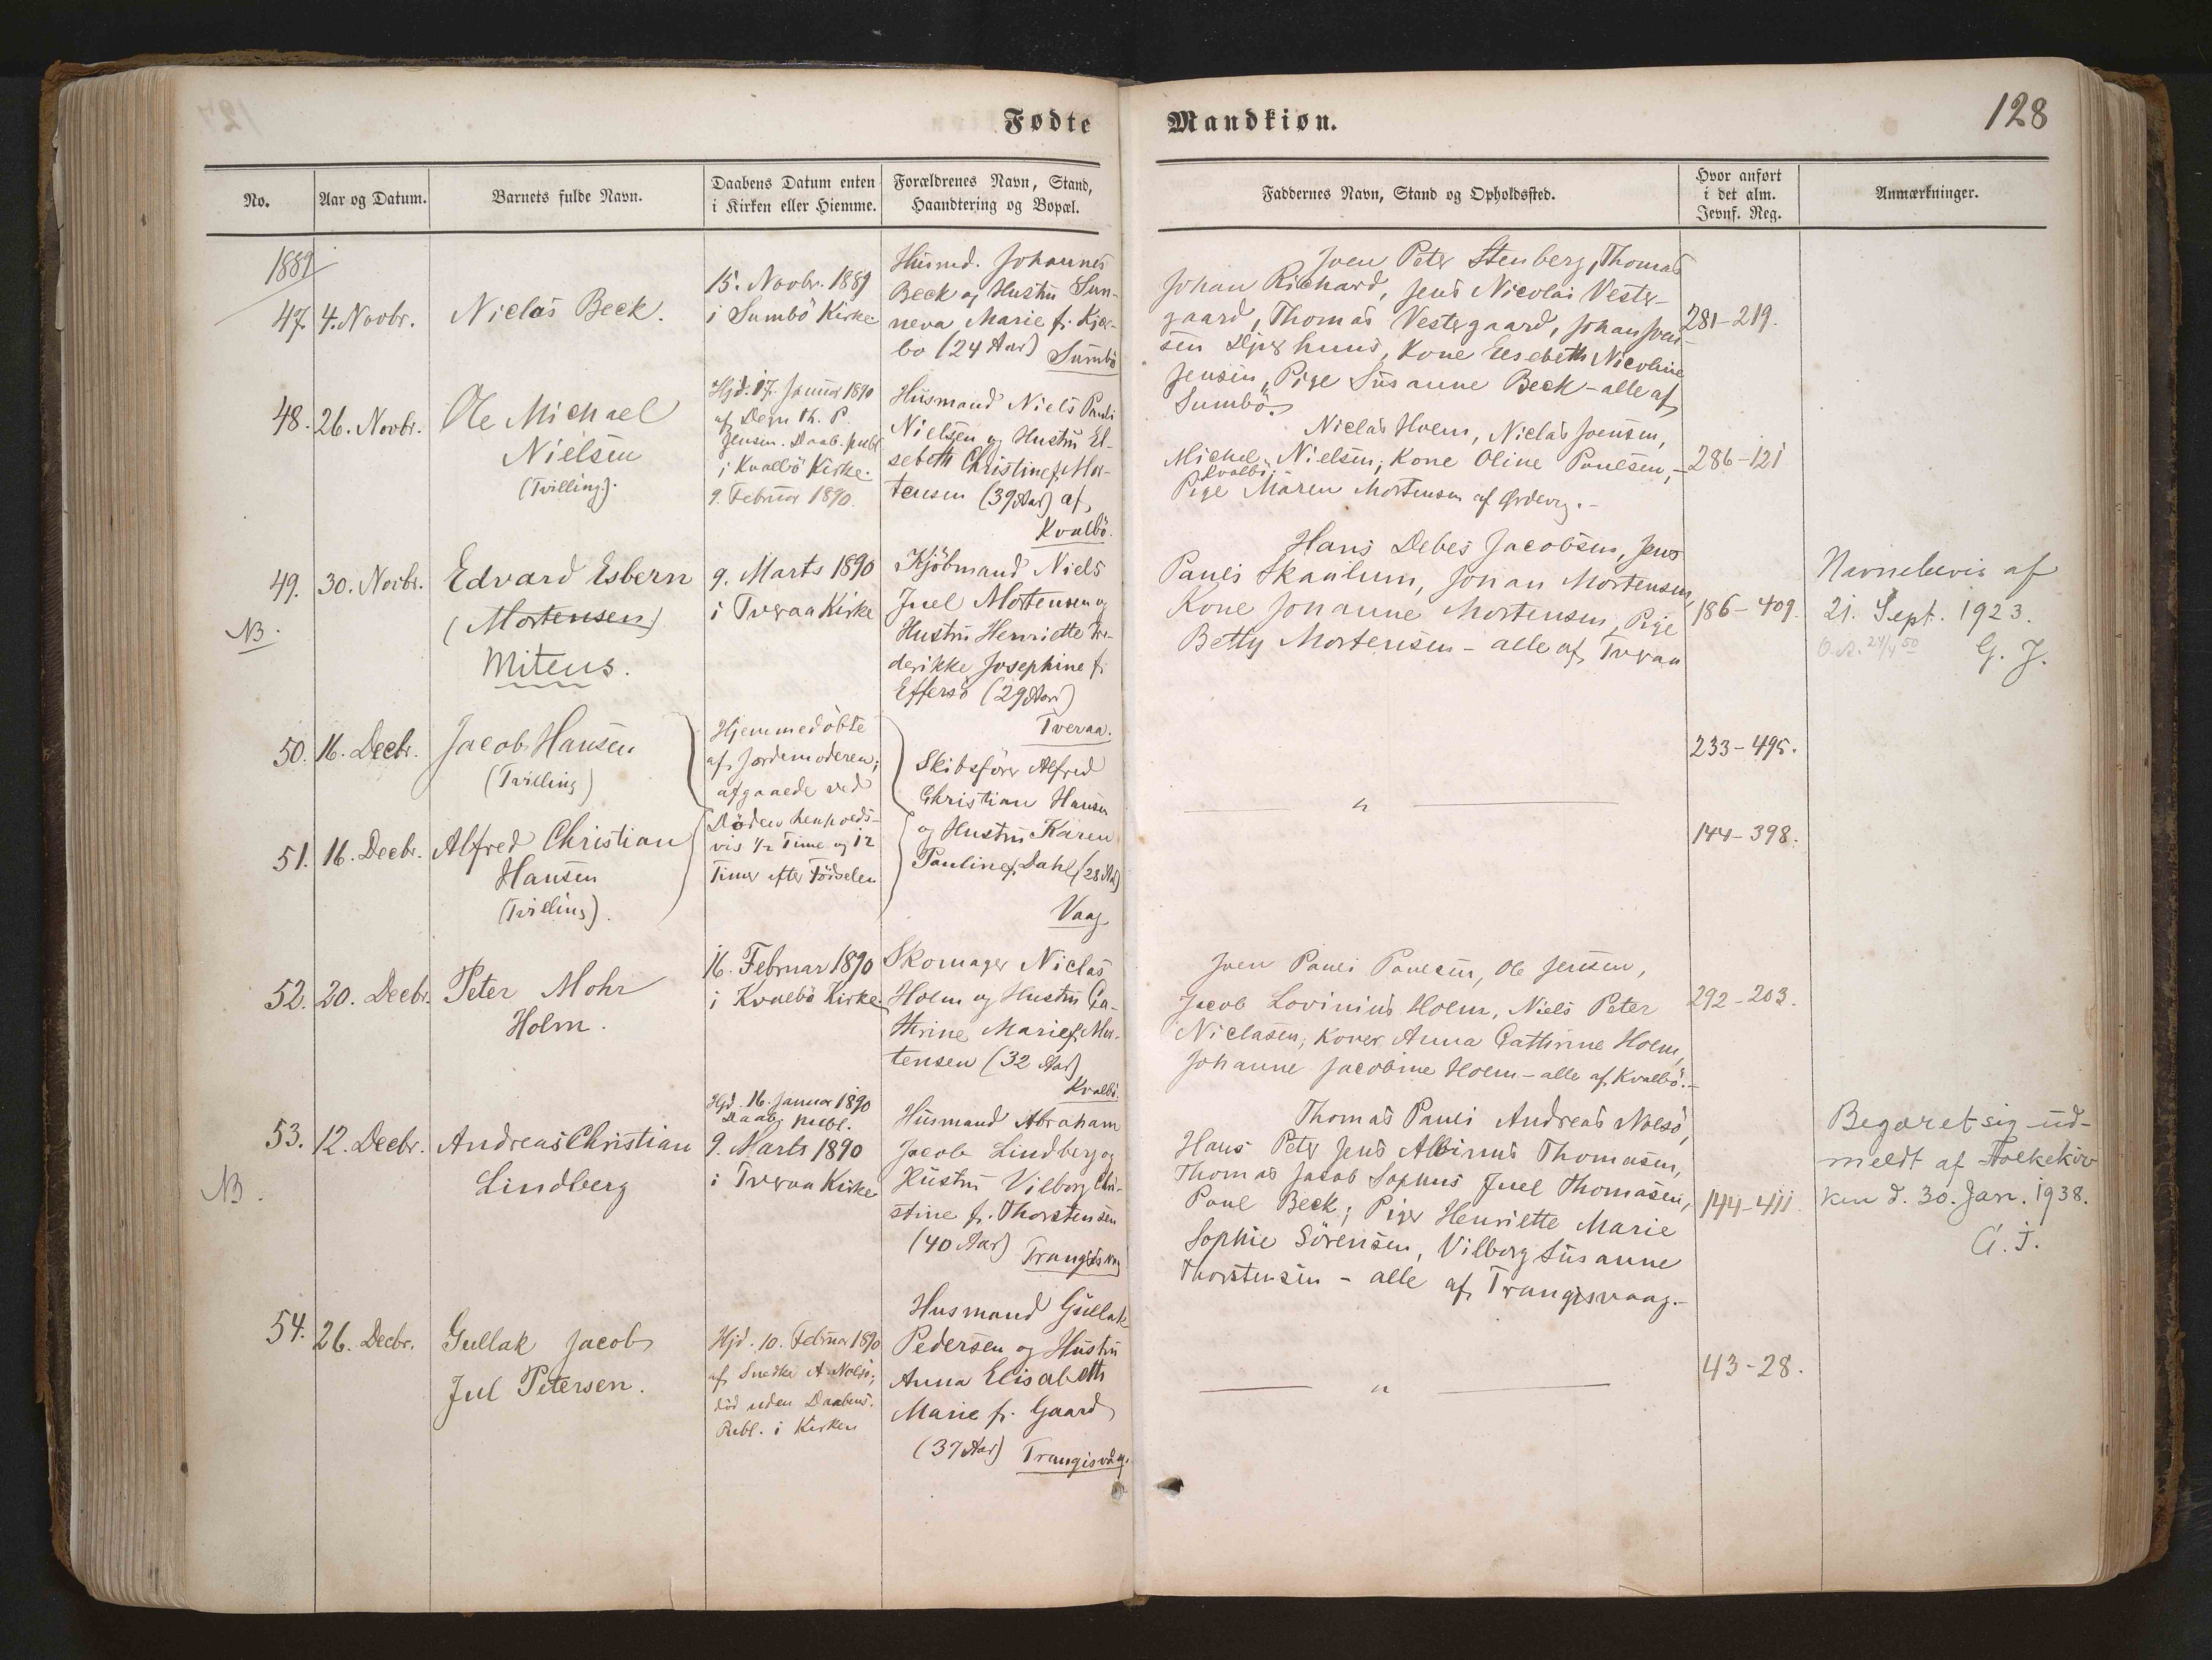 Fødte
Mandkiøn.
128
No.
Aar og Datum.
Barnets fulde Navn.
Daabens Datum enten
i Kirken eller Hiemme.
Forældrenes Navn, Stand,
Haandtering og Bopæl.
Faddernes Navn, Stand og Opholdssted.
Hvor anført
i det alm.
Jevnf. Reg.
Anmærkninger.
1889
47. 4. Novbr.
Niclas Beck.
15. Novbr. 1889
i Sumbö Kirke
Husmd. Johannes
Beck og Hustru Sun-
neva Marie f. Kjer-
bo (24 Aar)
Sumbö
Joen Peter Stenberg, Thomas
Johan Richard, Jens Nicolai Vester-
gaard, Thomas Vestergaard, Johan Joen-
sen Djprhuus, Kone Elsebeth Nicoline
Jensen, Pige Susanne Beck - alle af
Sumbö.
281-219.
48. 26. Novbr.
Ole Michael
Nielsen
(Tvilling).
Hjd. 17. Januar 1890
af Degn Th. P.
Jensen. Daab. publ
i Kvalbö Kirke.
9. Februar 1890.
Husmand Niels Pauli
Nielsen og Hustru El-
sebeth Christine f. Mor-
tensen (39 Aar) af
Kvalbö.
Niclas Holm, Niclas Joensen,
Michel Nielsen; Kone Oline Poulsen, -
Kvalbö;
Pige Maren Mortensen af Ördevig. -
286-121
49. 30. Novbr.
NB.
Edvard Esbern
(Mortensen)
Mitens.
9. Marts 1890
i Tveraa Kirke
Kjöbmand Niels
Juel Mortensen og
Hustru Henriette Fre-
derikke Josephine f.
Effersö (29 Aar)
Tveraa.
Hans Debes Jacobsen, Jens
Pauli Skaalum, Johan Mortensen,
Kone Johanne Mortensen, Pige
Betty Mortensen - alle af Tveraa
186-409.
Navnebevis af
21. Sept. 1923.
G. J.
50. 16. Decbr.
Jacob Hansen
(Tvilling)
Hjemmedöbte
af Jordemoderen;
afgaaede ved
Döden henholds-
vis 1/2 Time og 12
Timer efter Födselen
Skibsförer Alfred
Christian Hansen
og Hustru Karen
Pauline f. Dahl (28 Aar)
Vaag
233-495.
"
51. 16. Decbr.
Alfred Christian
Hansen
(Tvilling).
144-398.
52. 20. Decbr.
Peter Mohr
Holm.
16. Februar 1890
i Kvalbö Kirke.
Skomager Niclas
Holm og Hustru Ca-
thrine Marie f. Mor-
tensen (32 Aar)
Kvalbö.
Joen Pauli Poulsen, Ole Jensen,
Jacob Lovinius Holm, Niels Peter
Niclasen; Koner Anna Cathrine Holm,
Johanne Jacobine Holm - alle af Kvalbö. -
292-203.
53. 12. Decbr.
NB.
Andreas Christian
Lindberg
Hjd. 16. Januar 1890
Daab. publ.
9. Marts 1890
i Tveraa Kirke
Husmand Abraham
Jacob Lindberg og
Hustru Vilborg Chri-
stine f. Thorstensen
(40 Aar)
Trangisvaag
Thomas Pauli Andreas Nolsö,
Hans Peter Jens Albinus Thomasen,
Thomas Jacob Sophus Juel Thomasen,
Poul Beck; Piger Henriette Marie
Sophie Sörensen, Vilborg Susanne
Thorstensen - alle af Trangisvaag. -
144-411.
Begæret sig ud-
meldt af Folkekir-
ken d. 30. Jan. 1938.
54. 26. Decbr.
Gullak Jacob
Jul Petersen.
Hjd. 10. Februar 1890
af Snedker A. Nolsö;
död uden Daabens
Publ. i Kirken
Husmand Gullak
Pedersen og Hustru
Anna Elisabeth
Marie f. Gaard
(37 Aar)
Trangisvåg.
"
43-28.